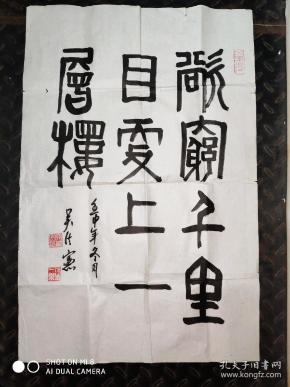 欲穷千里
目更上一
层楼
壬申年冬月
SHOT ON MI 8
AI DUAL CAMERA
孔夫子旧书网